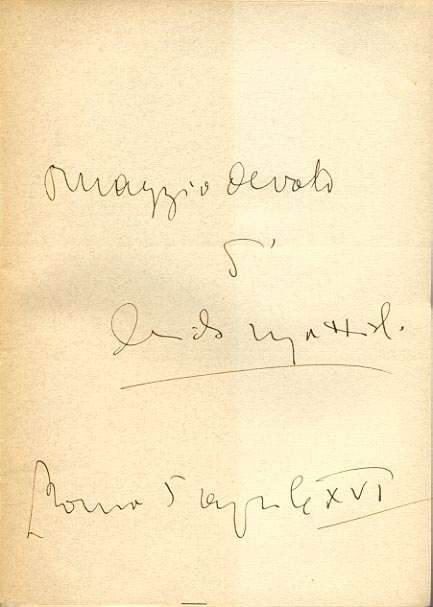 omaggio devoto
di
Guido Mattioli
Roma 5 aprile XVI